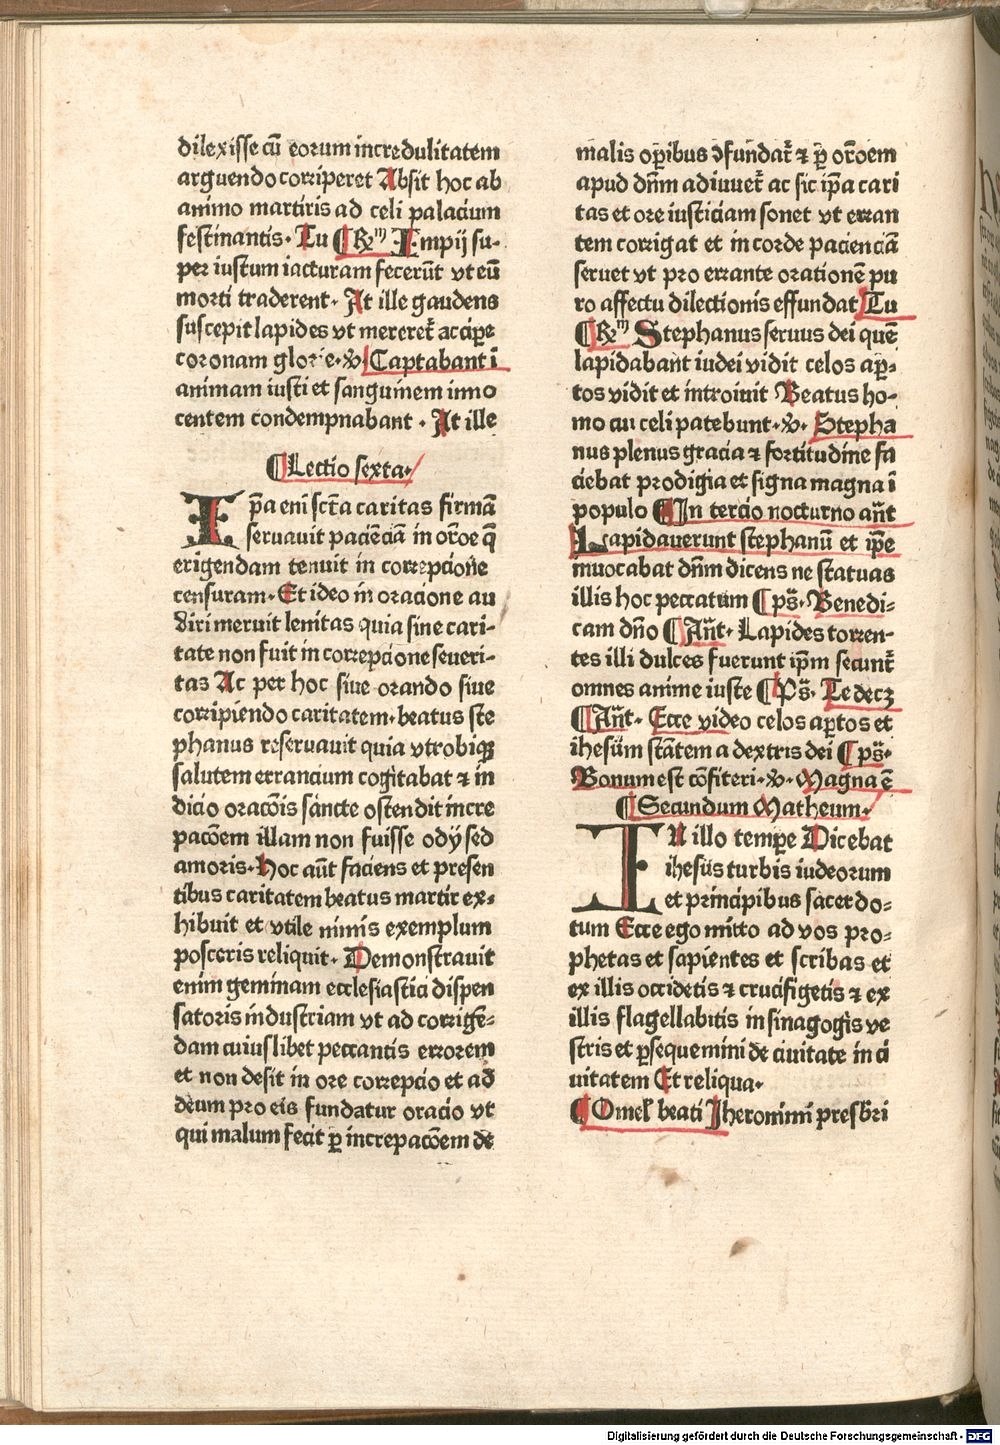 dilexisse cū eorum incredulitatem
arguendo corriperet Absit hoc ab
animo martiris ad celi palacium
festinantis. Tu ¶ Rm Impij su-
per iustum iacturam fecerūt vt eū
morti traderent. At ille gaudens
suscepit lapides vt mereret᷑ accip̄e
coronam glorie. v. Captabant ī
animam iusti et sanguinem inno
centem condempnabant. At ille
¶ Lectio sexta.
Ip̄a eni sct̄a caritas firmā
seruauit paciēciā in or̄oe q̄
erigendam tenuit in correpcione
censuram. Et ideo in oracione au
diri meruit lenitas quia sine cari-
tate non fuit in correpcione seueri-
tas Ac per hoc siue orando siue
corripiendo caritatem. beatus ste
phanus reseruauit quia vtrobiqꝫ
salutem errancium cogitabat ⁊ in
dicio oracōis sancte ostendit incre
pacōem illam non fuisse odij sed
amoris. Hoc aūt faciens et presen
tibus caritatem beatus martir ex-
hibuit et vtile nimis exemplum
posteris reliquit. Demonstrauit
enim geminam ecclesiastici dispen
satoris industriam vt ad corrige-
dam cuiuslibet peccantis errorem
et non desit in ore correpcio et ad
deum pro eis fundatur oracio vt
qui malum fecit ꝑ increpacōem de
malis oꝑibus ↄfundat᷑ ⁊ ꝑ or̄oem
apud dn̄m adiuuet᷑ ac sic ip̄a cari
tas et ore iusticiam sonet vt erran
tem corrigat et in corde pacienciā
seruet vt pro errante orationē pu
ro affectu dilectionis effundat Tu
¶ Rm Stephanus seruus dei quē
lapidabant iudei vidit celos aꝑ-
tos vidit et introiuit Beatus ho-
mo cui celi patebunt. v. Stepha
nus plenus gracia ⁊ fortitudine fa
ciebat prodigia et signa magna ī
populo ¶ In tercio nocturno an̄t
Lapidauerunt stephanū et ip̄e
inuocabat dn̄m dicens ne statuas
illis hoc peccatum ¶ ps̄. Benedi-
cam dn̄o ¶ An̄t. Lapides torren-
tes illi dulces fuerunt ip̄m secunt᷑
omnes anime iuste ¶ Ps̄. Te decꝫ
¶ An̄t. Ecce video celos aꝑtos et
ihesūm stātem a dextris dei ¶ ps̄.
Bonum est cōfiteri. v. Magna ē
¶ Secundum Matheum.
In illo tempe Dicebat
ihesus turbis iudeorum
et principibus sacerdo-
tum Ecce ego mitto ad vos pro-
phetas et sapientes et scribas et
ex illis occidetis ⁊ crucifigetis ⁊ ex
illis flagellabitis in sinagogis ve
stris et ꝑsequemini de ciuitate in ci
uitatem Et reliqua.
¶ Omel̄ beati Jheronimi presbri
Digitalisierung gefördert durch die Deutsche Forschungsgemeinschaft - DFG